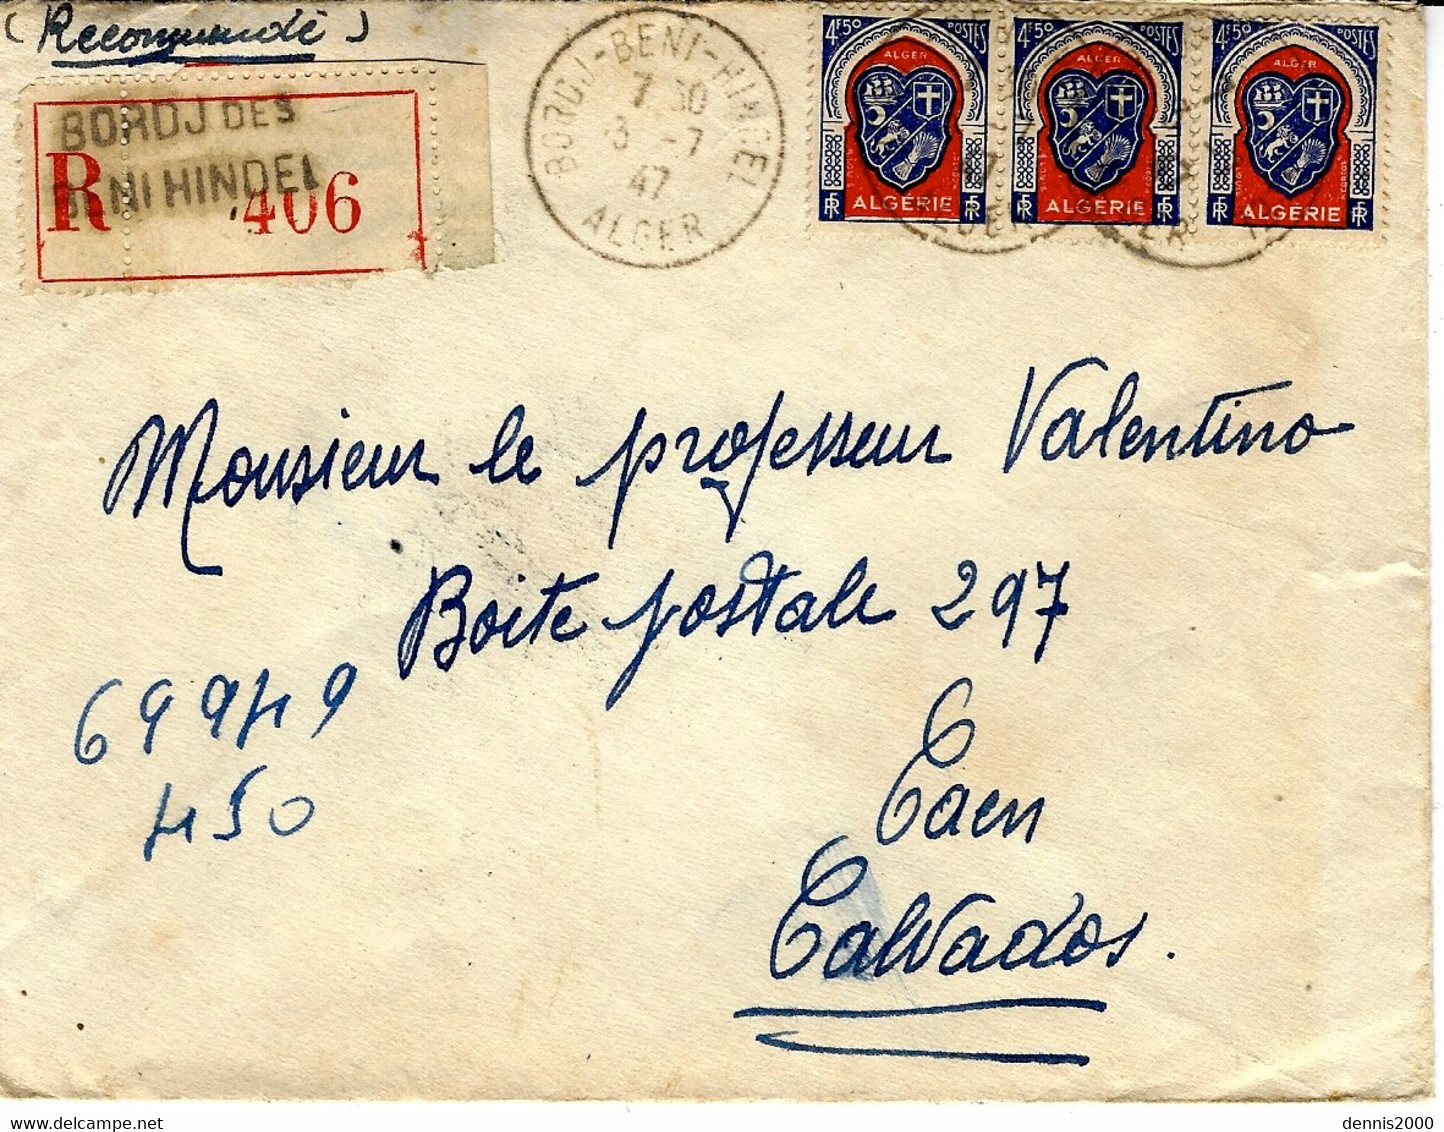 (Recommandé)
BORDJ DES
BENI HINDEL
R 406
BORDJ-BENI-HINDEL
7 30
3 -7
47
ALGER
4F50 POSTES
ALGER
ALGÉRIE
RF RF
4F50 POSTES
ALGER
ALGÉRIE
RF RF
4F50 POSTES
ALGER
ALGÉRIE
RF RF
Monsieur le professeur Valentino
Boite postale 297
69949
450
Caen
Calvados.
dennis2000